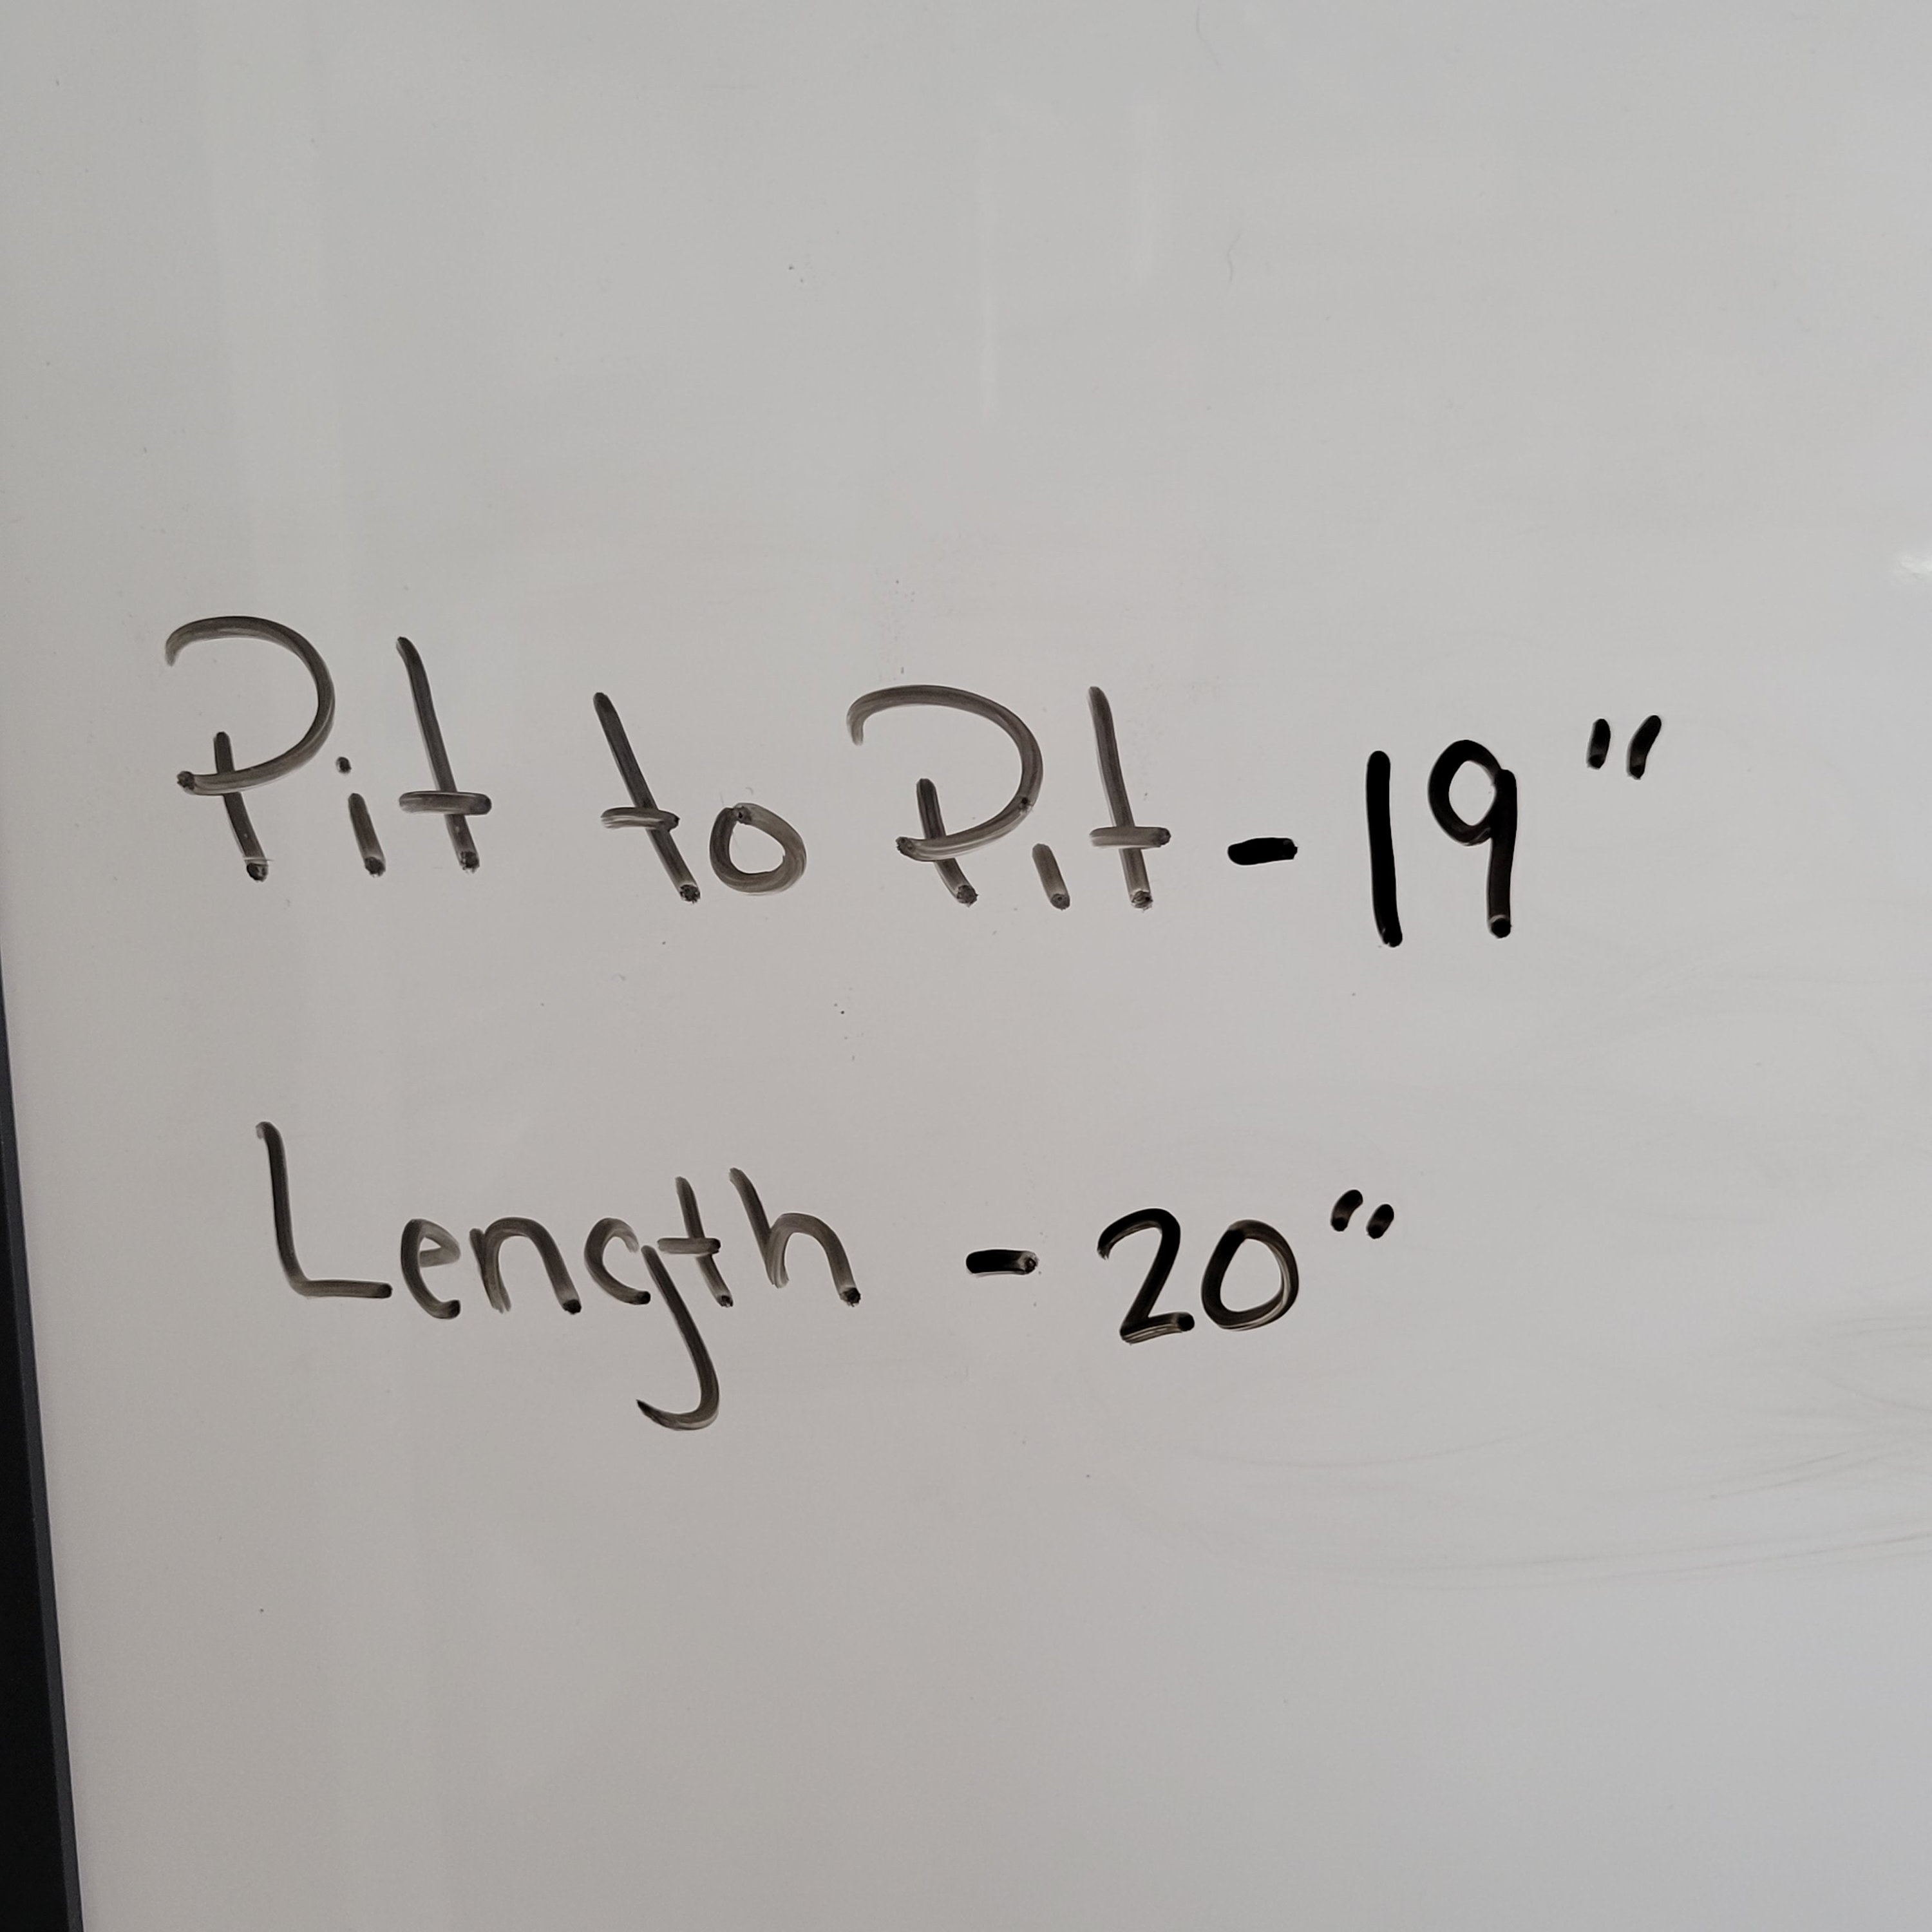 Pit to Pit - 19"
Length - 20"